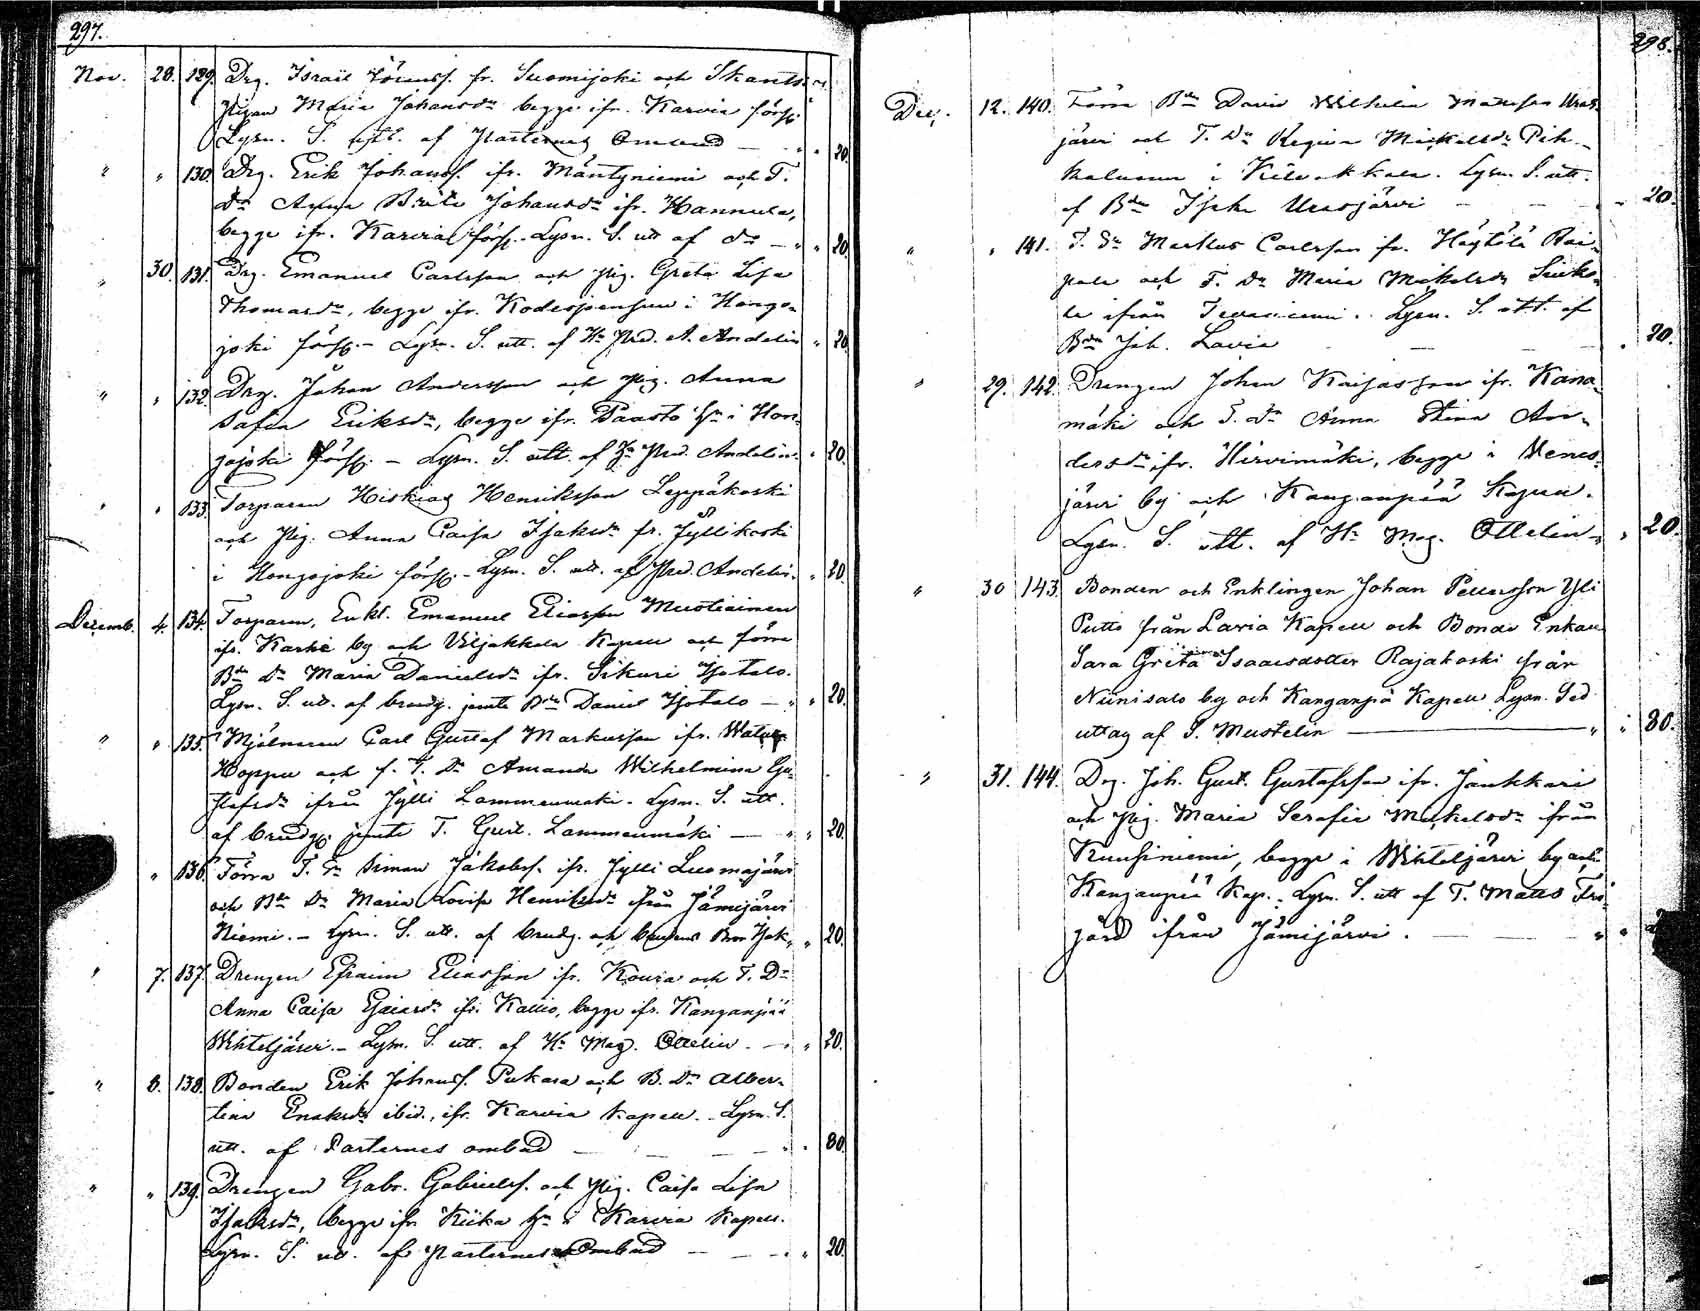 297.
Nov. 28. 129. Drg. Israel Göranss. fr. Suomijoki och Skants
Pigan Maria Johansdr begge ifr. Karvia förs.
Lysn. S. utt. af Parternes Ombud — " 20.
" " 130. Drg. Erik Johanss. ifr. Mäntyniemi och T.
Dr Anna Brita Johansdr ifr. Hannula,
begge ifr. Karvia förs. Lysn. S. utt af do — " " 20.
" 30. 131. Drg. Emanuel Carlsson och Pig. Greta Lisa
Thomasdr, begge ifr. Kodesjoensuu i Hongo-
joki förs. – Lysn. S. utt. af Hr Pred. A. Andelin " 20.
" " 132. Drg. Johan Andersson och Pig. Anna
Safia Eriksdr, begge ifr. Paasto hn i Hon-
gojoki förs. – Lysn. S. utt. af Hr Pred. Andelin. " 20.
" " 133. Torparen Hiskias Henriksson Leppäkoski
och Pig. Anna Caisa Isaksdr fr. Jyllikoski
i Hongojoki förs. – Lysn. S. utt. af Pred. Andelin. " 20.
Decemb. 4. 134. Torparen, Enkl. Emanuel Eliasson Mustiainen
ifr. Karhe by och Viljakkala Kapell och förra
Bde Dr Maria Danielsdr ifr. Sikuri Isotalo.
Lysn. S. utt. af brudg. jemte Bde Daniel Isotalo — " " 20.
" " 135. Mjölnaren Carl Gustaf Markusson ifr. Watula
Hoppu och f. T. Dr Amanda Wilhelmina Gu-
stafsdr ifrån Jylli Lammenmäki. Lysn. S. utt.
af brudg. jemte T. Gust. Lammenmäki — " " 20.
" 136. Förra T. Sn Simon Jakobss. ifr. Jylli Luomajärvi
och Bde Dr Maria Lovisa Henriksdr ifrån Jämijärvi
Niemi. – Lysn. S. utt. af brudg. och brudens Bror Isak " 20.
" 7. 137. Drengen Efraim Eliasson ifr. Koura och T. Dr
Anna Caisa Esaiasdr ifr. Kallio, begge ifr. Kanganpää
Wihteljärvi. – Lysn. S. utt. af Hr Mag. Ottelin. — " 20.
" 8. 138. Bonden Erik Johanss. Pukara och B. Dr Alber-
tina Enoksdr ibid., ifr. Karvia Kapell. – Lysn. S.
utt. af Parternes ombud — — — " . 80.
" " 139. Drengen Gabr. Gabrielss. och Pig. Caisa Lisa
Isaksdr, begge ifr. Kiika hn i Karvia Kapell.
Lysn. S. utt. af Parternes Ombud — — " 20.
298.
Dec. 12. 140. Förra Bde David Wilhelm Mattsson Uras-
järvi och T. Dr Regina Mickelsdr Pih-
i Kilvakkala. Lysn. S. utt.
af Bde Isak Urasjärvi — — " 20.
" " 141. T. Sn Markus Carlsson fr. Höytölä
och T. Dr Maria Mickelsdr
ifrån Lysn. S. utt. af
Bde Joh. Lavia — — . 20.
" 29. 142. Drengen Johan Kaijasson ifr. Kana-
mäki och T. Dr Anna Stina An-
dersdr ifr. Hirvimäki, begge i Venes-
järvi by och Kanganpää Kapell.
Lysn. S. utt. af Hr Mag. Ottelin — " . 20.
" 30 143. Bonden och Enklingen Johan Pettersson Yli
Putto från Lavia Kapell och Bonde Enkan
Sara Greta Isaacsdotter Rajakoski från
Niinisalo by och Kanganpä Kapell Lysn. Sed.
uttag af S. Mustelin — " " 80.
" 31. 144. Drg. Joh. Gust. Gustafsson ifr. Jankkari
och Pig. Maria Serafia Mickelsdr ifrån
Kuusiniemi, begge i Wihteljärvi by och
Kanganpää Kap. Lysn. S. utt af T. Matts Frö-
järd ifrån Jämijärvi. — " "